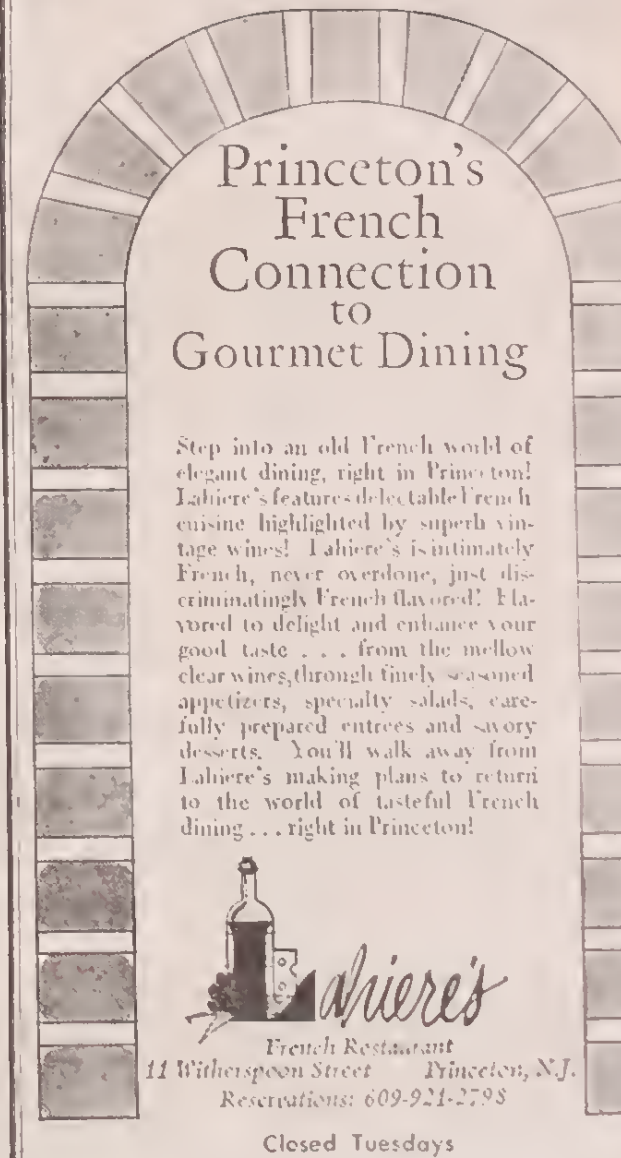 Princeton's
French
Connection
to
Gourmet Dining
Step into an old French world of
elegant dining, right in Princeton!
Lahiere's features delectable French
cuisine highlighted by superb vin-
tage wines! Lahiere's is intimately
French, never overdone, just dis-
criminatingly French flavored! Fla-
vored to delight and enhance your
good taste . . . from the mellow
clear wines, through finely seasoned
appetizers, specialty salads, care-
fully prepared entrees and savory
desserts. You'll walk away from
Lahiere's making plans to return
to the world of tasteful French
dining . . . right in Princeton!
Lahiere's
French Restaurant
11 Witherspoon Street Princeton, N.J.
Reservations: 609-921-2798
Closed Tuesdays